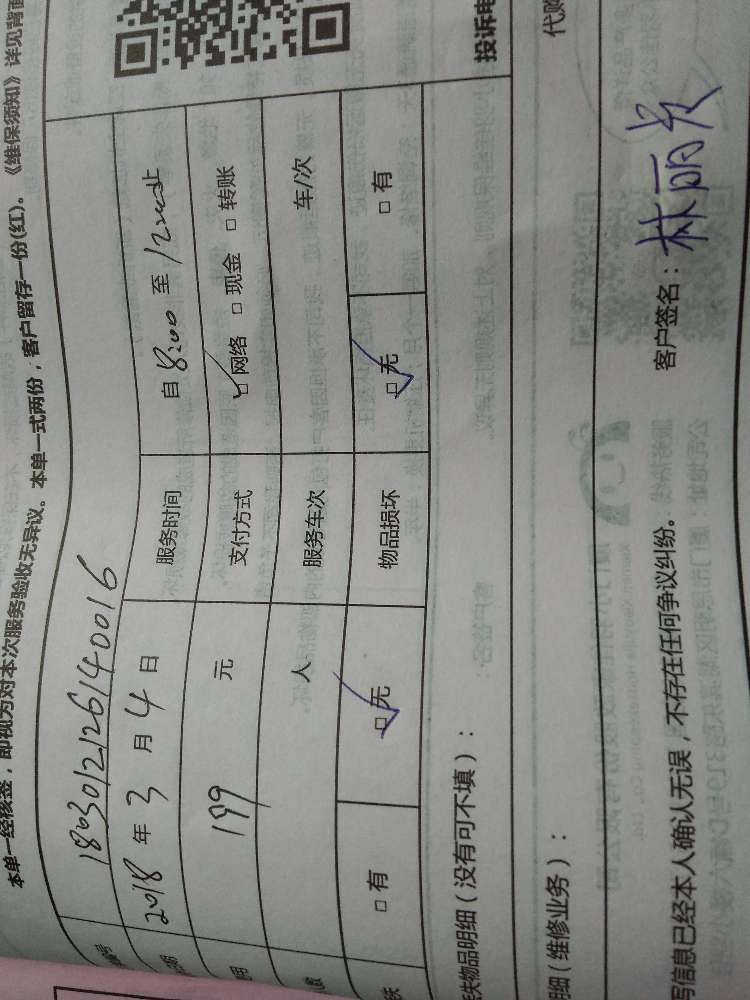 本单一经核签，即视为对本次服务验收无异议。本单一式两份，客户留存一份(红)。《维保须知》详见背面
编号 1803012126140016
2018 年 3 月 4 日 服务时间 自 8:00 至 12:00止
199 元 支付方式 □网络 □现金 □转账
人 服务车次 车/次
□有 □无 物品损坏 □无 □有
失物品明细（没有可不填）：
投诉电
明细（维修业务）：
代购
写信息已经本人确认无误，不存在任何争议纠纷。 客户签名：林丽